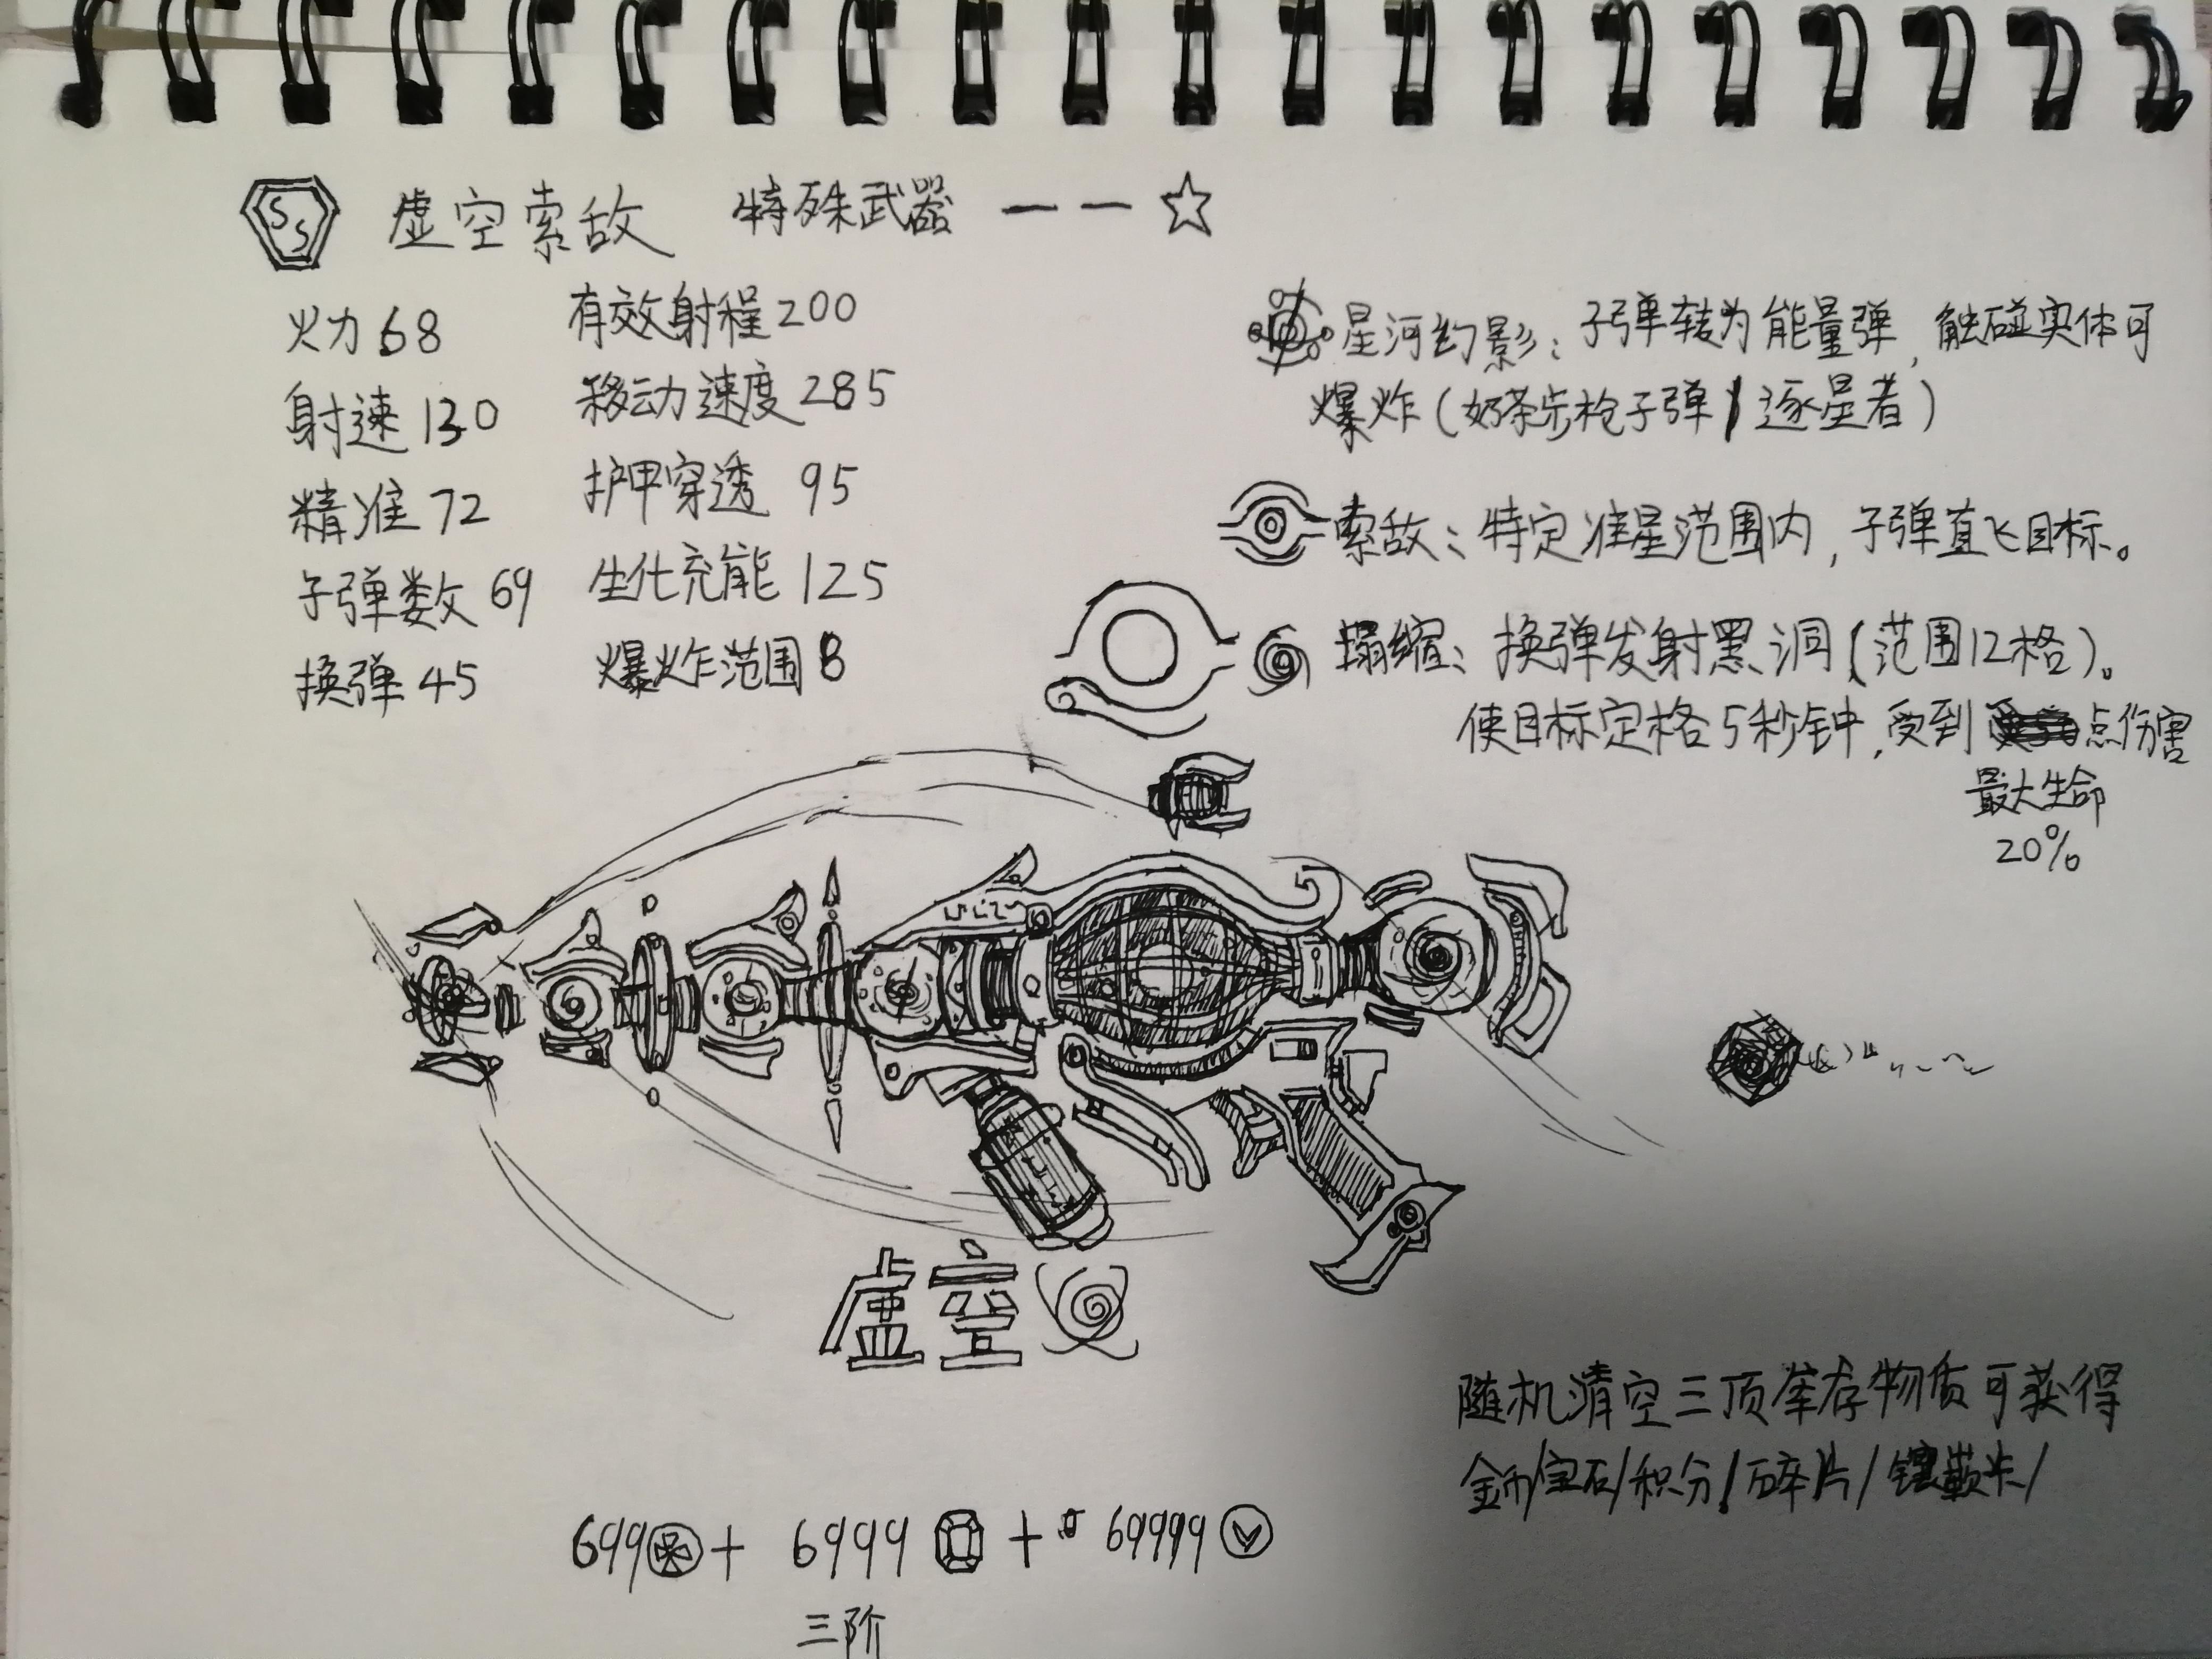 SS 虚空索敌 特殊武器 一 一 ☆
火力 68 有效射程 200
射速 130 移动速度 285
精准 72 护甲穿透 95
子弹数 69 生化充能 125
换弹 45 爆炸范围 8
星河幻影：子弹转为能量弹，触碰实体可
爆炸（奶茶步枪子弹/逐星者）
索敌：特定准星范围内，子弹直飞目标。
塌缩：换弹发射黑洞（范围12格）。
使目标定格5秒钟，受到 点伤害
最大生命
20%
虚空
随机清空三项库存物质可获得
金币/宝石/积分/碎片/镶嵌卡/
699 + 6999 + 69999
三阶